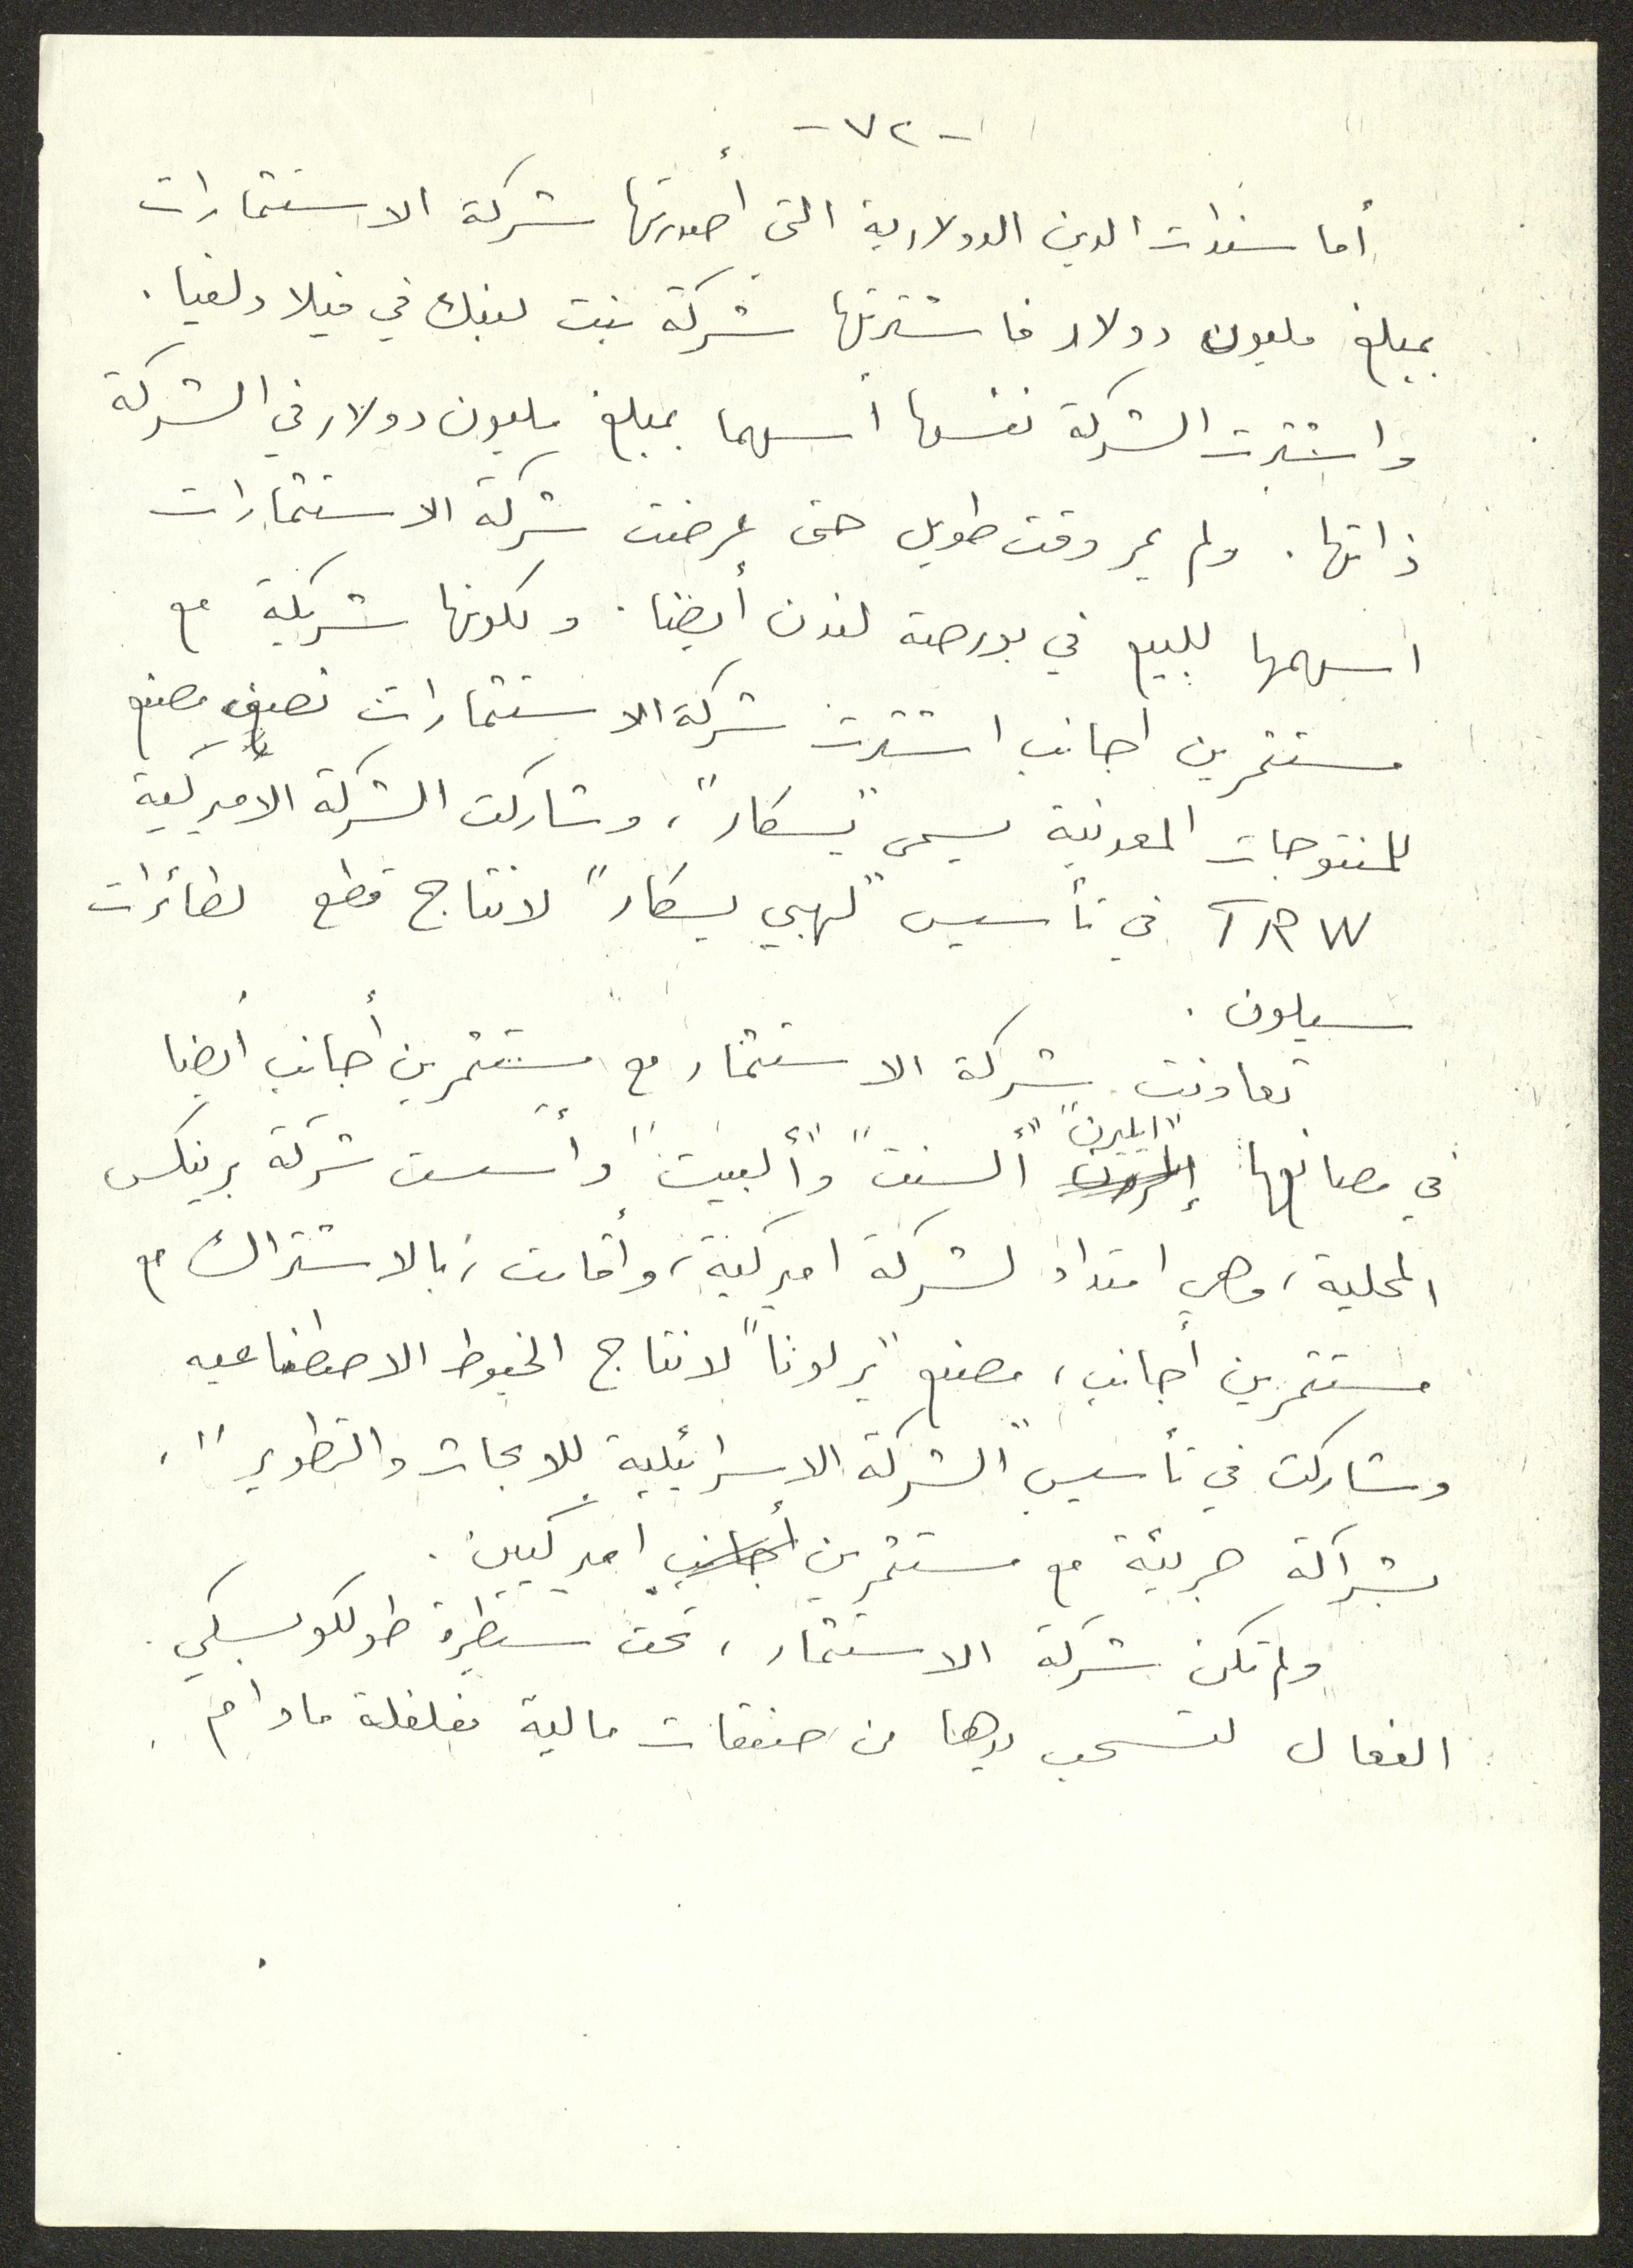 -٧٢-
أما سندات الدين الدولارية التي أصدرتها شركة الاستثمارات
بمبلغ مليون دولار فاشترتها شركة بنت لبنك في فيلادلفيا.
واشترت الشركة نفسها أسهما بمبلغ مليون دولار في الشركة
ذاتها. ولم يمر وقت طويل حتى عرضت شركة الاستثمارات
اسهمها للبيع في بورصة لندن أيضا. وبكونها شريكة مع
مستثمرين اجانب اشترت شركة الاستثمارات نصف مصنع
للمنتوجات المعدنية يسمى "يسكار"، وشاركت الشركة الأميركية
TRW في تأسيس "لهبي يسكار" لانتاج قطع لطائرات
سيلون.
تعاونت شركة الاستثمار مع مستثمرين أجانب أيضا
في مصانعها "ايليرن" "ألسنت" و"ألبيت" وأسست شركة برينكس
المحلية، وهي امتداد لشركة اميركية، وأقامت، بالاشتراك مع
مستثمرين أجانب، مصنع "يرلونا" لانتاج الخيوط الاصطناعيه
وشاركت في تأسيس "الشركة الاسرائيلية للابحاث والتطوير"،
بشراكة جريئة مع مستثمرين أجانب اميركيين.
ولم تكن شركة الاستثمار، تحت سيطرة طولكوبسكي
الفعال لتسحب يدها من صفقات مالية مفلفلة مادام